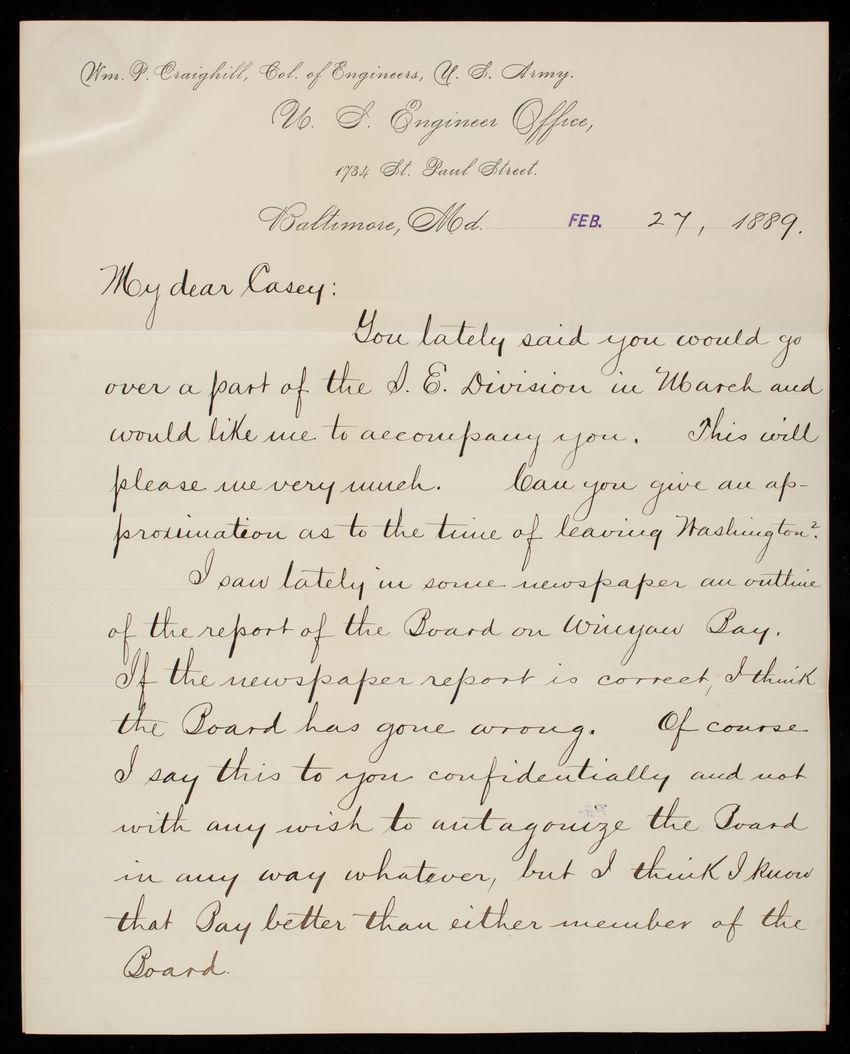 Wm. P. Craighill, Col. of Engineers, U. S. Army.
U. S. Engineer Office,
1734 St. Paul Street.
Baltimore, Md. FEB. 27, 1889.
My dear Casey:
You lately said you would go
over a part of the S. E. Division in March and
would like me to accompany you. This will
please me very much. Can you give an ap-
proximation as to the time of leaving Washington?
I saw lately in some newspaper an outline
of the report of the Board on Winyaw Bay.
If the newspaper report is correct, I think
the Board has gone wrong. Of course
I say this to you confidentially and not
with any wish to antagonize the Board
in any way whatever, but I think I know
that Bay better than either member of the
Board.